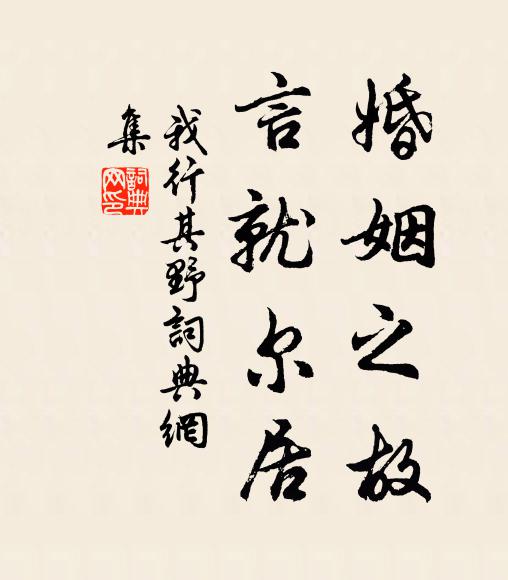 婚姻之故
言就尔居
我行其野詞典網
集
詞典
网印